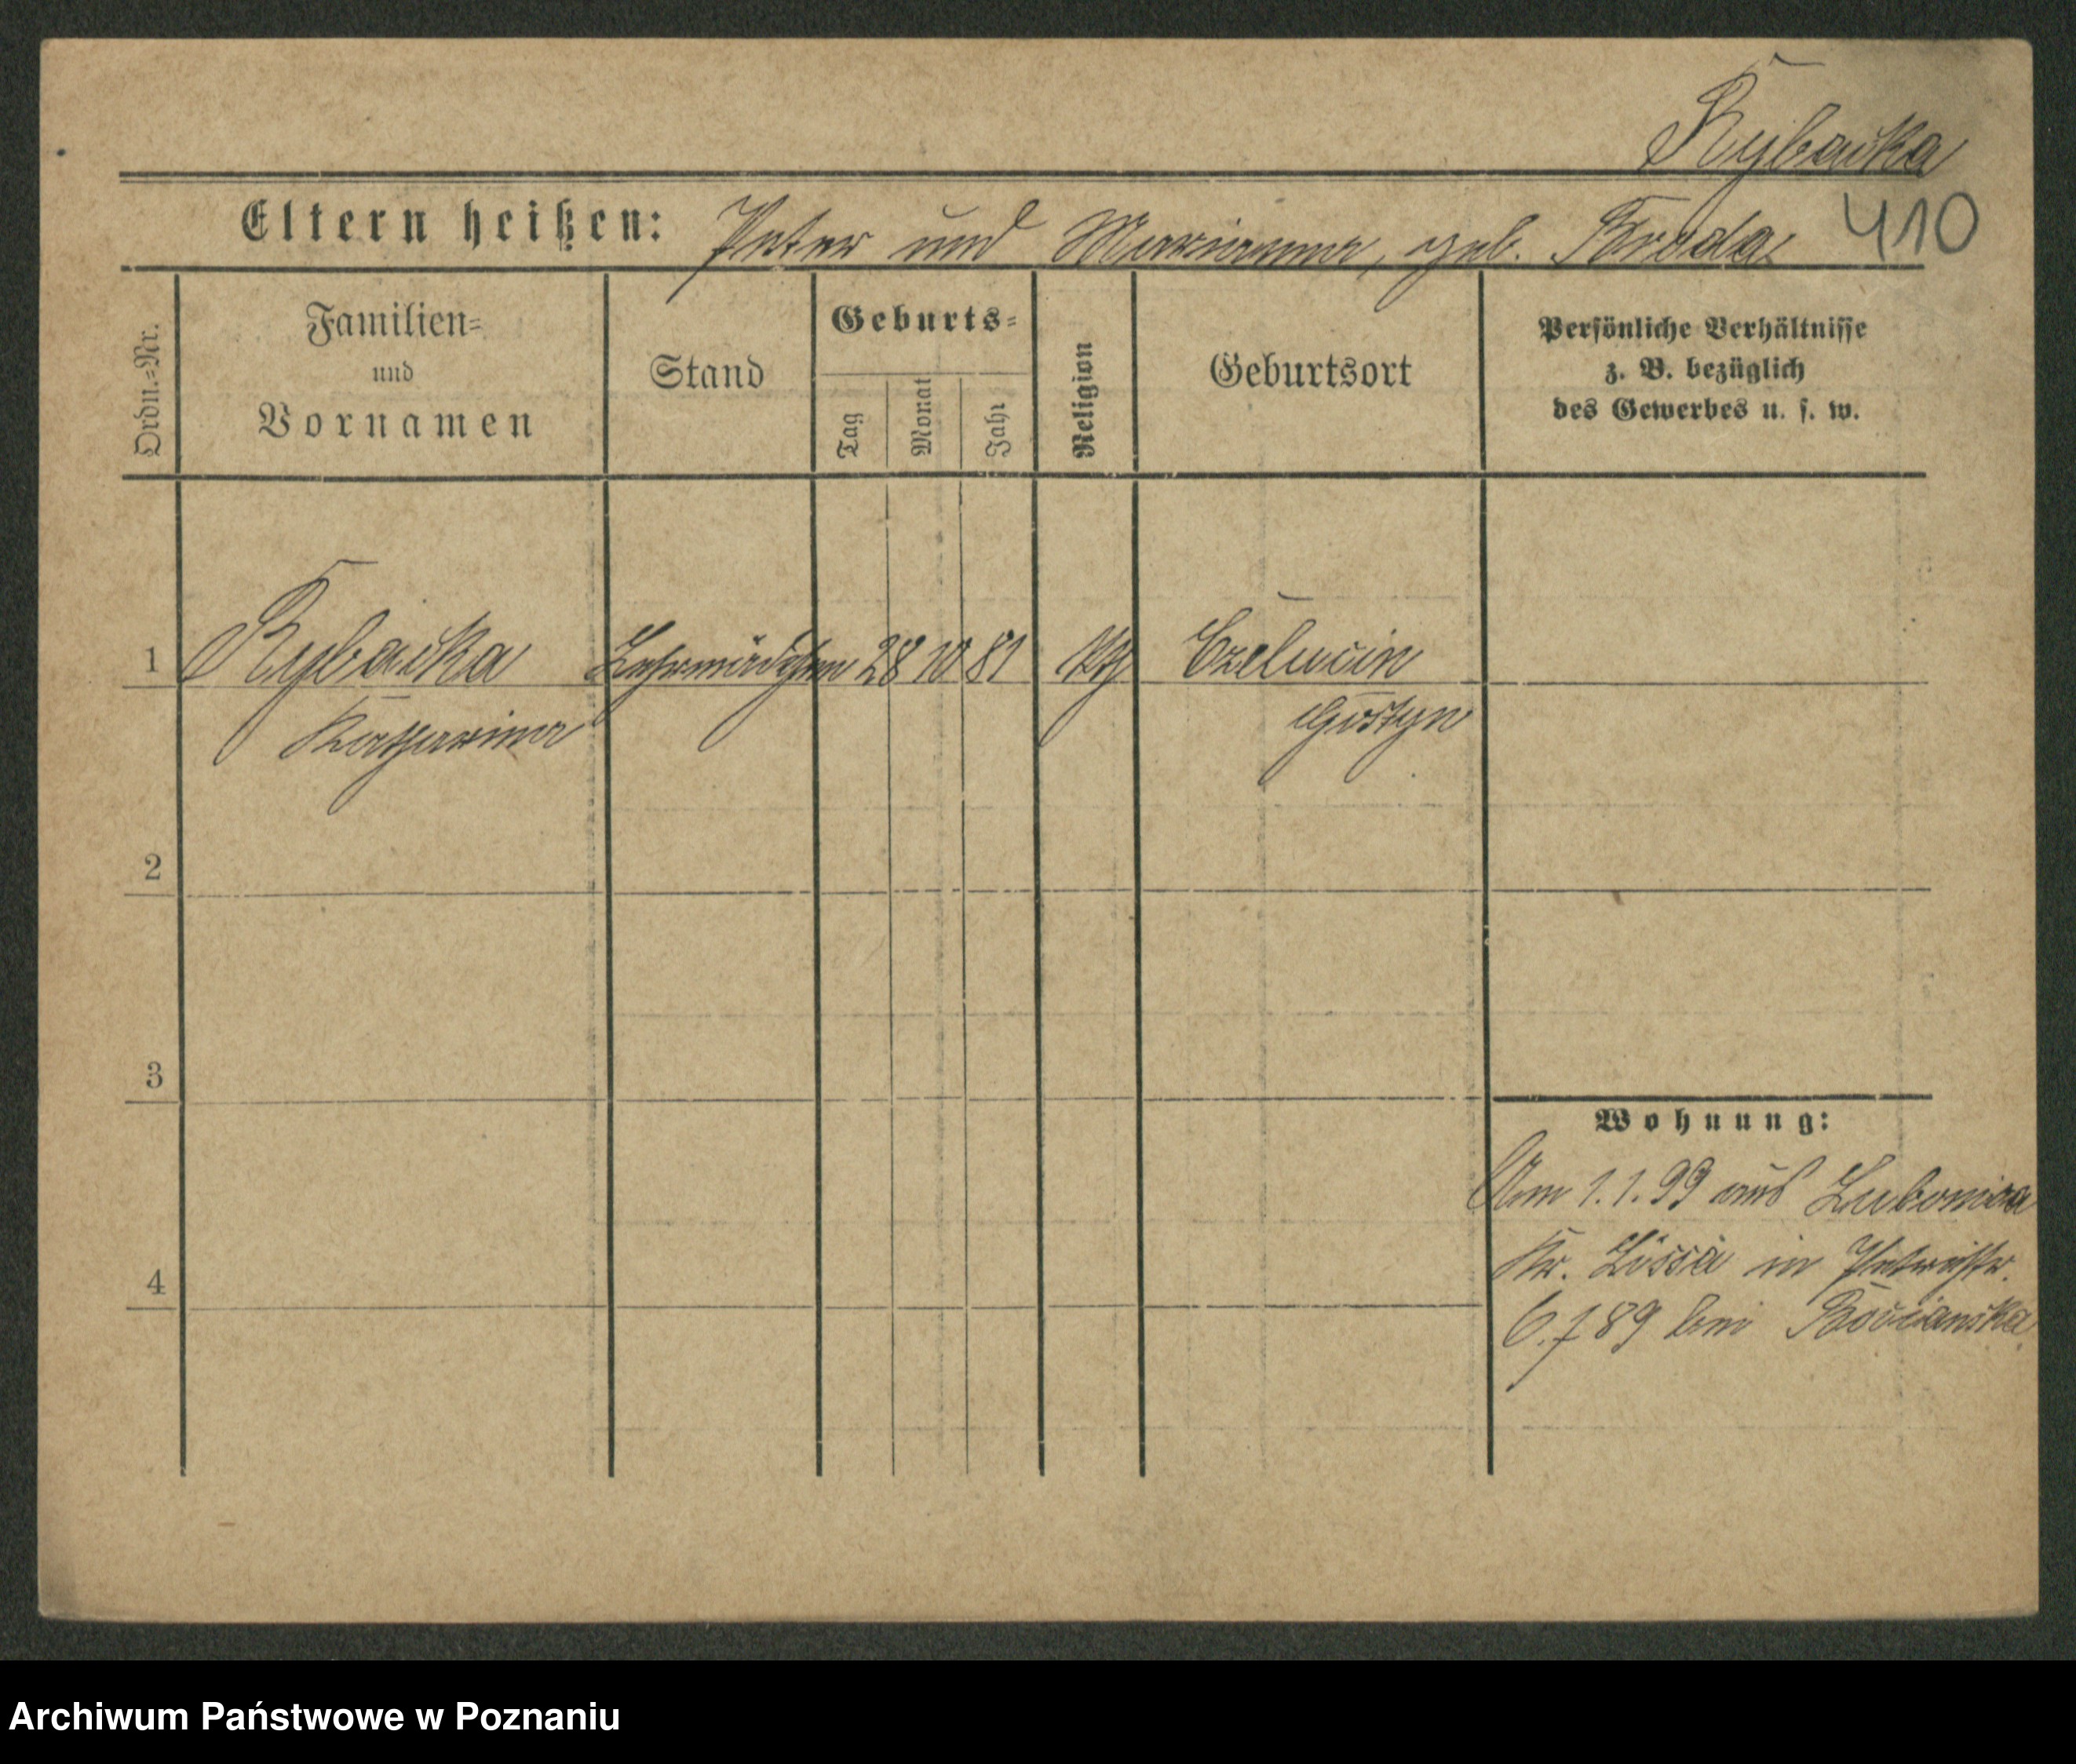 Rybacka
Eltern heißen: Peter und Marianna, geb. Broda 410
Ordn.-Nr. Familien- und Vornamen Stand Geburts- Tag Monat Jahr Religion Geburtsort Persönliche Verhältnisse z. B. bezüglich des Gewerbes u. s. w.
1 Rybacka Lehrmädchen 28 10 81 kth Czeluscin
Katharina Gostyn
2
3
Wohnung:
Am 1.1.99 aus Lubonia
4 Kr. Lissa in
6. f 89 bei Bocianska
Archiwum Państwowe w Poznaniu